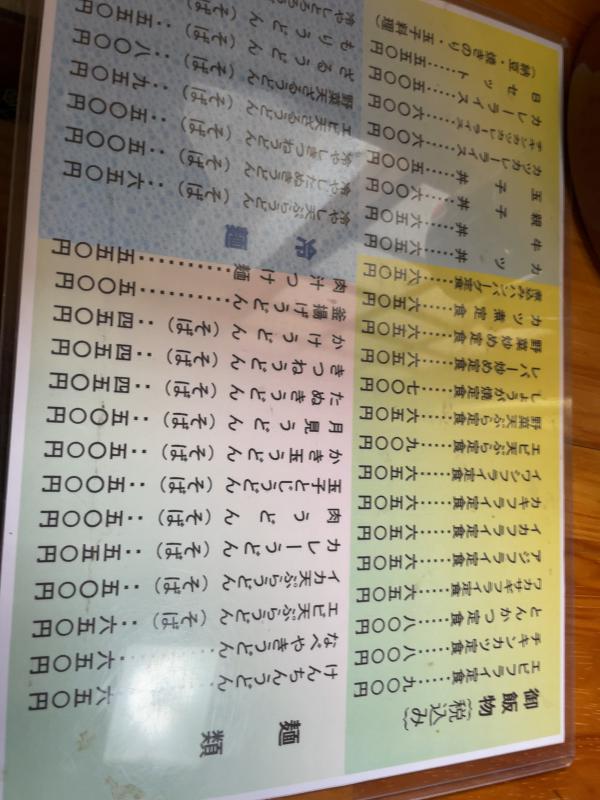 御飯物
(税込み)
エビフライ定食・・・・・九〇〇円
チキンカツ定食・・・・・八〇〇円
とんかつ定食・・・・・八〇〇円
ワカサギフライ定食・・・・六五〇円
アジフライ定食・・・・・六五〇円
イカフライ定食・・・・・六五〇円
カキフライ定食・・・・・六五〇円
イワシフライ定食・・・・六五〇円
エビ天ぷら定食・・・・・九〇〇円
野菜天ぷら定食・・・・・六五〇円
しょうが焼定食・・・・・七〇〇円
レバー炒め定食・・・・・六五〇円
野菜炒め定食・・・・・六五〇円
カツ煮定食・・・・・六五〇円
ハンバーグ定食・・・・六五〇円
カツ丼・・・・・六五〇円
牛丼・・・・・六五〇円
親子丼・・・・・六〇〇円
玉子丼・・・・・五〇〇円
カツカレーライス・・・・六五〇円
チキンカツカレーライス・・・・六〇〇円
カレーライス・・・・・
Bセット・・・・・五五〇円
(納豆・焼きのり・玉子料理)
麺類
けんちんうどん・・・・・・・・・六五〇円
なべやきうどん・・・・・・・・・六五〇円
エビ天ぷらうどん(そば)・・六五〇円
イカ天ぷらうどん(そば)・・五〇〇円
カレーうどん(そば)・・五五〇円
肉うどん(そば)・・五〇〇円
玉子とじうどん(そば)・・五〇〇円
かき玉うどん(そば)・・五〇〇円
月見うどん(そば)・・五〇〇円
たぬきうどん(そば)・・四五〇円
きつねうどん(そば)・・四五〇円
かけうどん(そば)・・四五〇円
釜揚げうどん・・・・・・・・・五〇〇円
肉汁つけ麺・・・・・・・・・五五〇円
冷麺
冷やし天ぷらうどん(そば)・・六五〇円
冷やしたぬきうどん(そば)・・五〇〇円
冷やしきつねうどん(そば)・・五〇〇円
エビ天ざるうどん(そば)・・九五〇円
野菜天ざるうどん(そば)・・八〇〇円
ざるうどん(そば)・・五〇〇円
もりうどん(そば)
冷やしとろろ